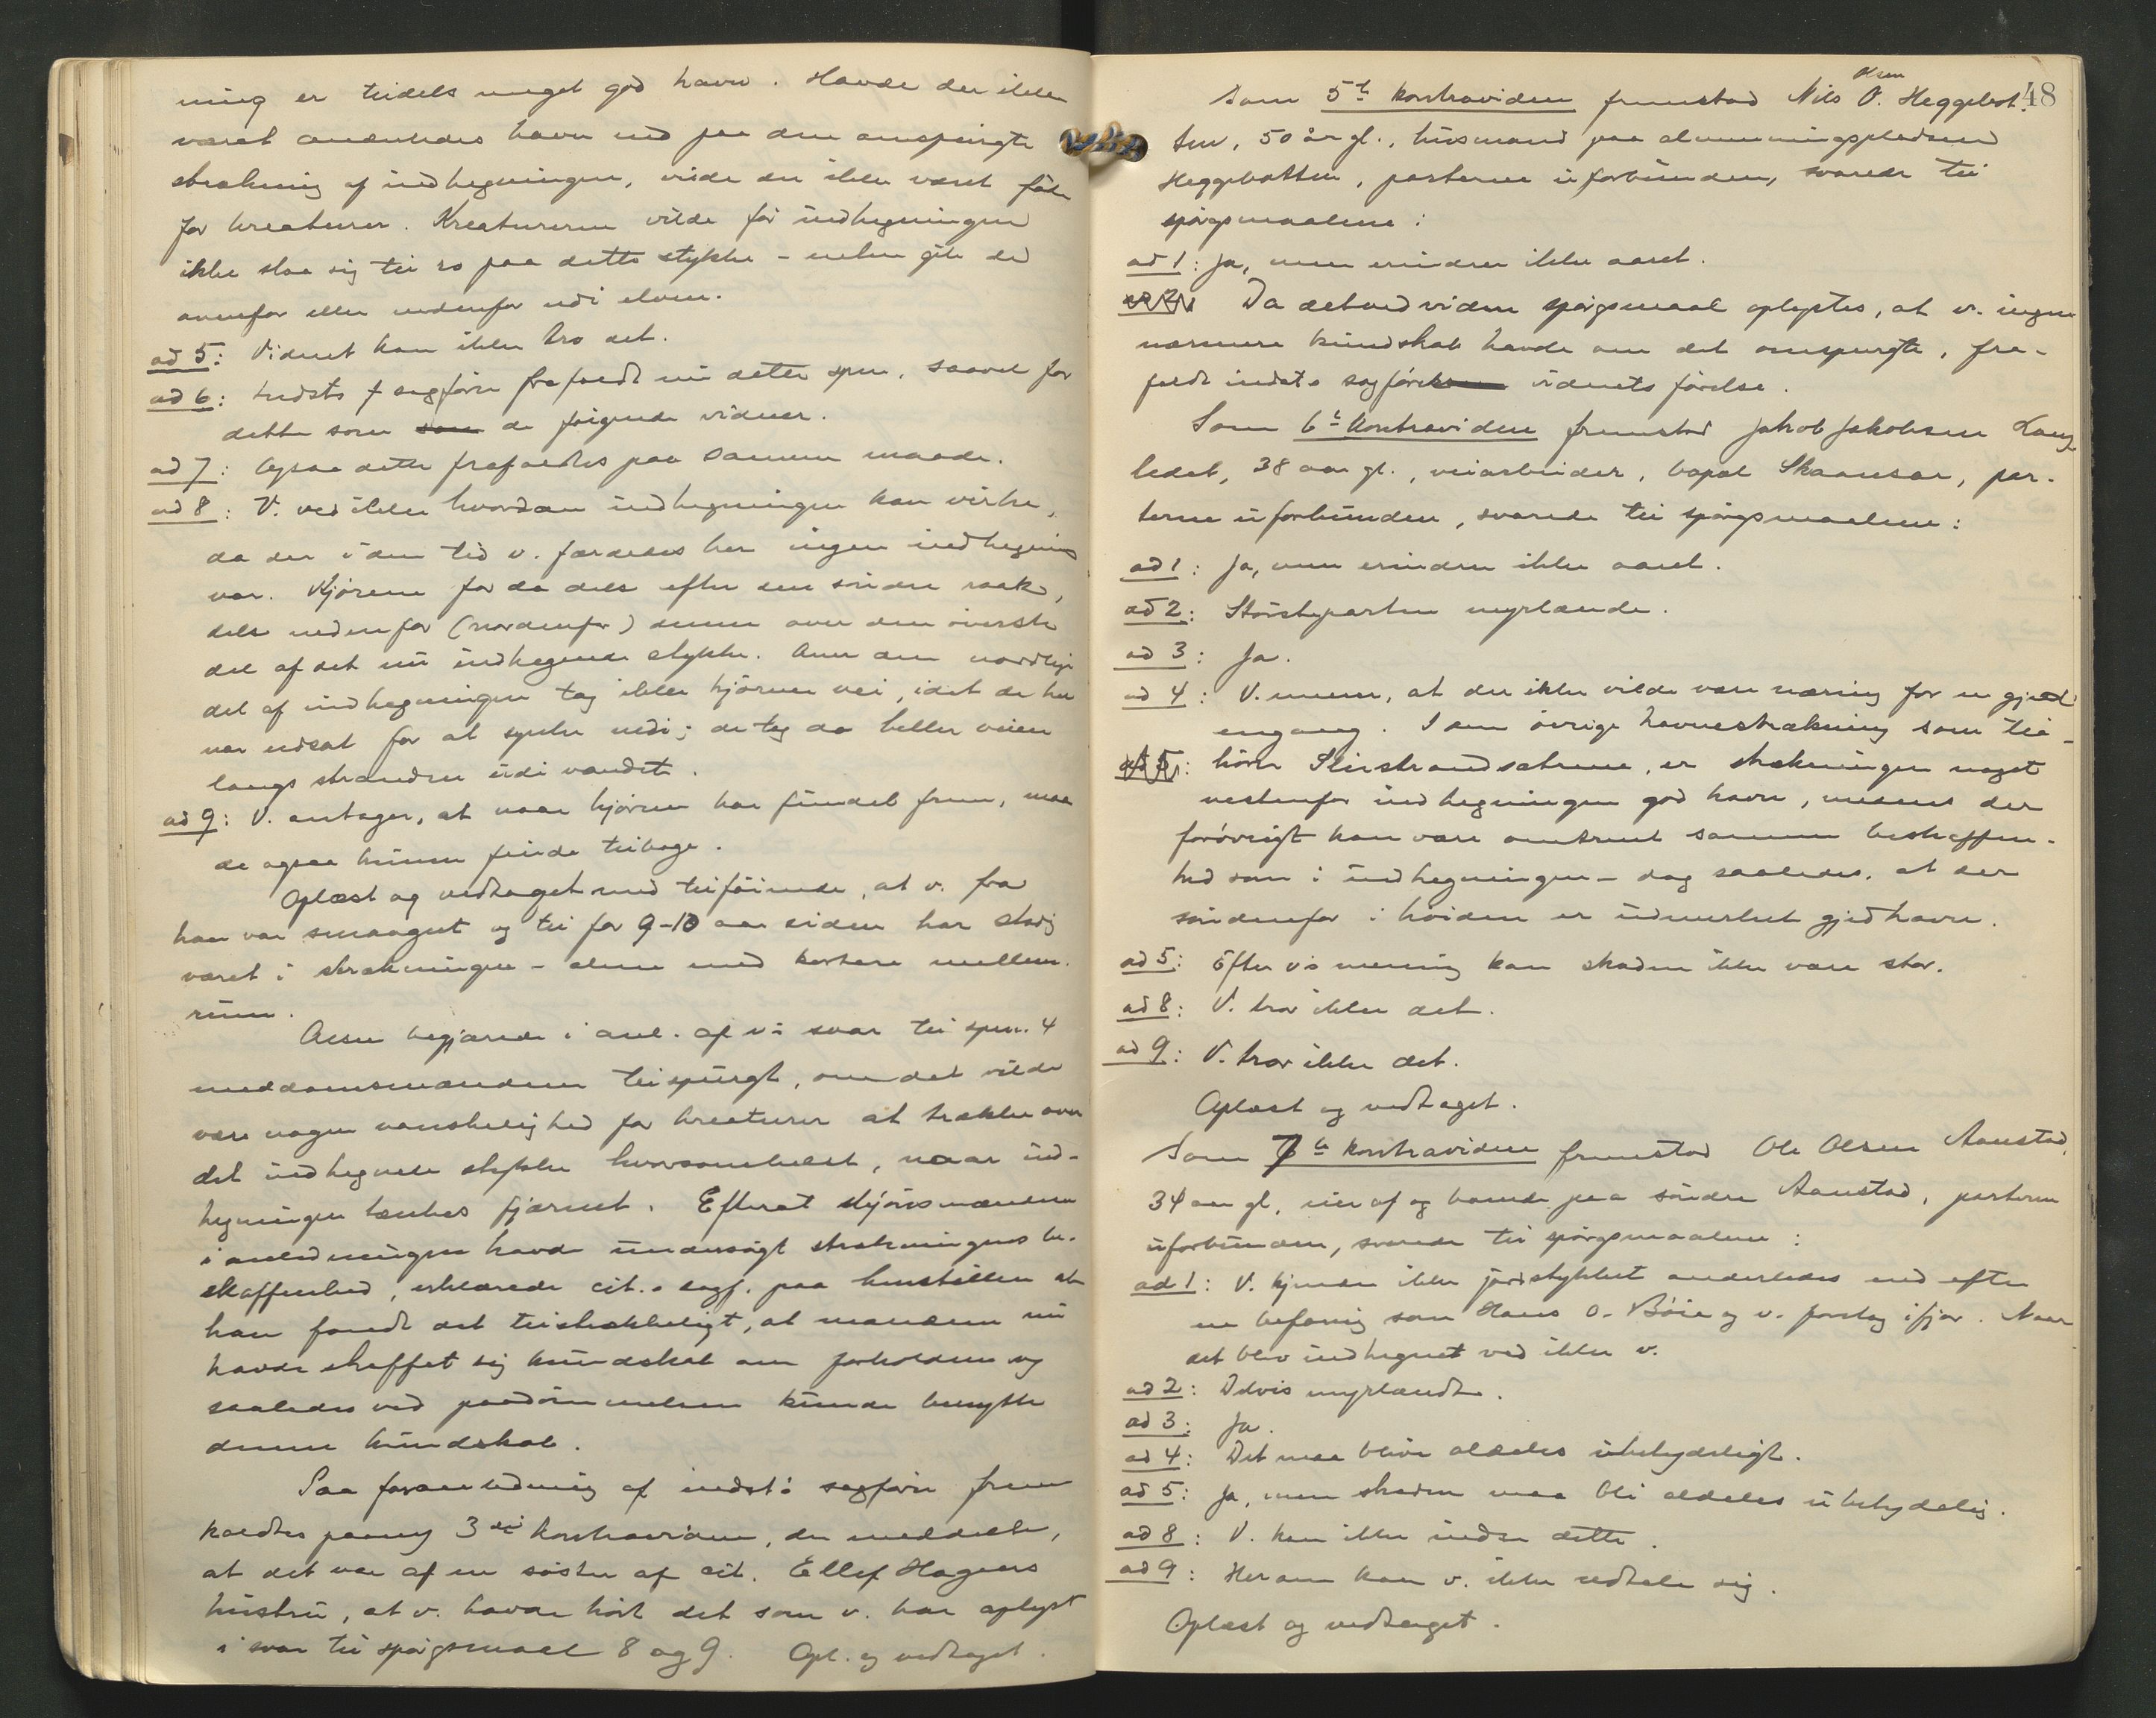 ning er tildels meget god havn. Havde der ikke
været anderledes havn end paa den omspurgte
strækning af indhegningen, vilde der ikke været føde
for kreaturer. Kreaturerne vilde før indhegningen
ikke slaa sig til ro paa dette stykke - uden gik de
ovenfor eller nedenfor udi elven.
ad 5: Vidnet kan ikke tro det.
ad 6: Indsts sagfører frafaldt nu dette spm. saavel for
dette som som de følgende vidner.
ad 7: Ogsaa dette frafaldtes paa samme maade.
ad 8: V. ved ikke hvordan indhegningen kan virke,
da der i den tid v. færdedes her ingen indhegning
var. Kjørene for da dels efter den søndre raak,
dels nedenfor (nordenfor) denne over den øverste
del af det nu indhegnede stykke. Over den nordlige
del af indhegningen tog ikke kjørene vei, idet de her
var udsat for at synke nedi; de tog da heller veien
langs stranden udi vandet.
ad 9: V. antager, at naar kjørene har fundet frem, maa
de ogsaa kunne finde tilbage.
Oplæst og vedtaget med tilføiende, at v. fra
han var smaagut og til for 9-10 aar siden har stadig
været i strækningen - alene med kortere mellem-
rum.
Olsen begjærede i anl. af v's svar til spm. 4
meddomsmændene tilspurgt, om det vilde
være nogen vanskelighed for kreaturer at trække over
det indhegnede stykke hvorsomhelst, naar ind-
hegningen tænkes fjærnet. Efterat skjønsmændene
i anledningen havde undersøgt strækningens be-
skaffenhed, erklærede cit.s sagf. paa henstillen at
han fandt det tilstrækkeligt, at mændene nu
havde skaffet sig kundskab om forholdene og
saaledes ved paadømmelsen kunde benytte
denne kundskab.
Paa foranledning af indst's sagfører frem
kaldtes paany 3die kontravidne, der meddelte,
at det var af en søster af cit. Ellef Hagens
hustru, at v. havde hørt det som v. har oplyst
i svar til spørgsmaal 8 og 9. Opl. og vedtaget.
48
Olsen
Som 5te kontravidne fremstod Nils O. Heggebot-
ten, 50 år gl., husmand paa almenningspladsen
Heggebotten, parterne uforbunden, svarede til
spørgsmaalene:
ad 1: Ja, men erindrer ikke aaret.
ad 2: Da det ved vidnes spørgsmaal oplystes, at v. ingen
nærmere kundskab havde om det omspurgte, fra-
faldt indsts sagfører vidnets førelse.
Som 6te kontravidne fremstod Jakob Jakobsen Lang
ledet, 38 aar gl., veiarbeider, bopæl Skaansar, par-
terne uforbunden, svarede til spørgsmaalene:
ad 1: Ja, men erindrer ikke aaret.
ad 2: Størsteparten myrlænde.
ad 3: Ja.
ad 4: V. mener, at der ikke vilde være næring for en gjed
engang. I den øvrige havnestrækning som til-
ad 5: hører Slirstrandsætrene, er strækningen noget
vestenfor indhegningen god havn, mens der
forøvrigt kan være omtrent samme beskaffen-
hed som i indhegningen - dog saaledes, at der
søndenfor i høiden er udmerket gjedhavn.
ad 5: Efter v's mening kan skaden ikke være stor.
ad 8: V. tror ikke det.
ad 9: V. tror ikke det.
Oplæst og vedtaget.
Som 7de kontravidne fremstod Ole Olsen Aanstad,
34 aar gl, eier af og boende paa søndre Aanstad, parterne
uforbunden, svarede til spørgsmaalene:
ad 1: V. kjender ikke jordstykket anderledes end efter
en befaring som Hans O. Bøie og v. foretog ifjor. Naar
det blev indhegnet ved ikke v.
ad 2: Delvis myrlændt.
ad 3: Ja.
ad 4: Det maa blive aldeles ubetydeligt.
ad 5: Ja, men skaden maa bli aldeles ubetydelig.
ad 8: V. kan ikke indse dette.
ad 9: Herom kan v. ikke udtale sig.
Oplæst og vedtaget.